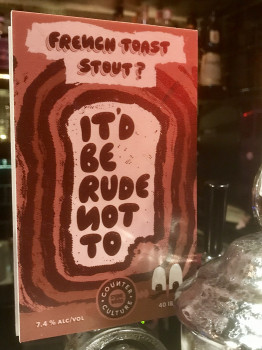 FRENCH TOAST
STOUT?
IT'D
BE
RUDE
NOT
TO
COUNTER
CULTURE
7.4% ALC/VOL